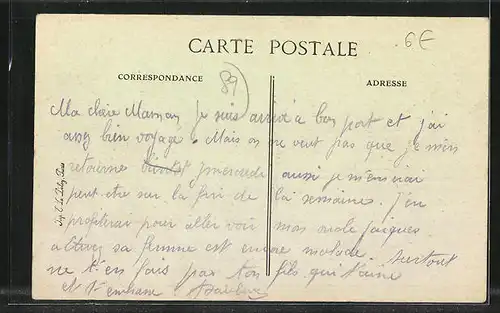 6€
CARTE POSTALE
89
CORRESPONDANCE
ADRESSE
Ma chère Maman, je suis arrivé à bon port et j'ai
assez bien voyagé. Mais on ne veut pas que je m'en
retourne mercredi aussi je m'en irai
peut-être sur la fin de la semaine. J'en
profiterai pour aller voir mon oncle jacques
à sa femme est encore malade surtout
ne t'en fais pas ton fils qui t'aime
et t'embrasse